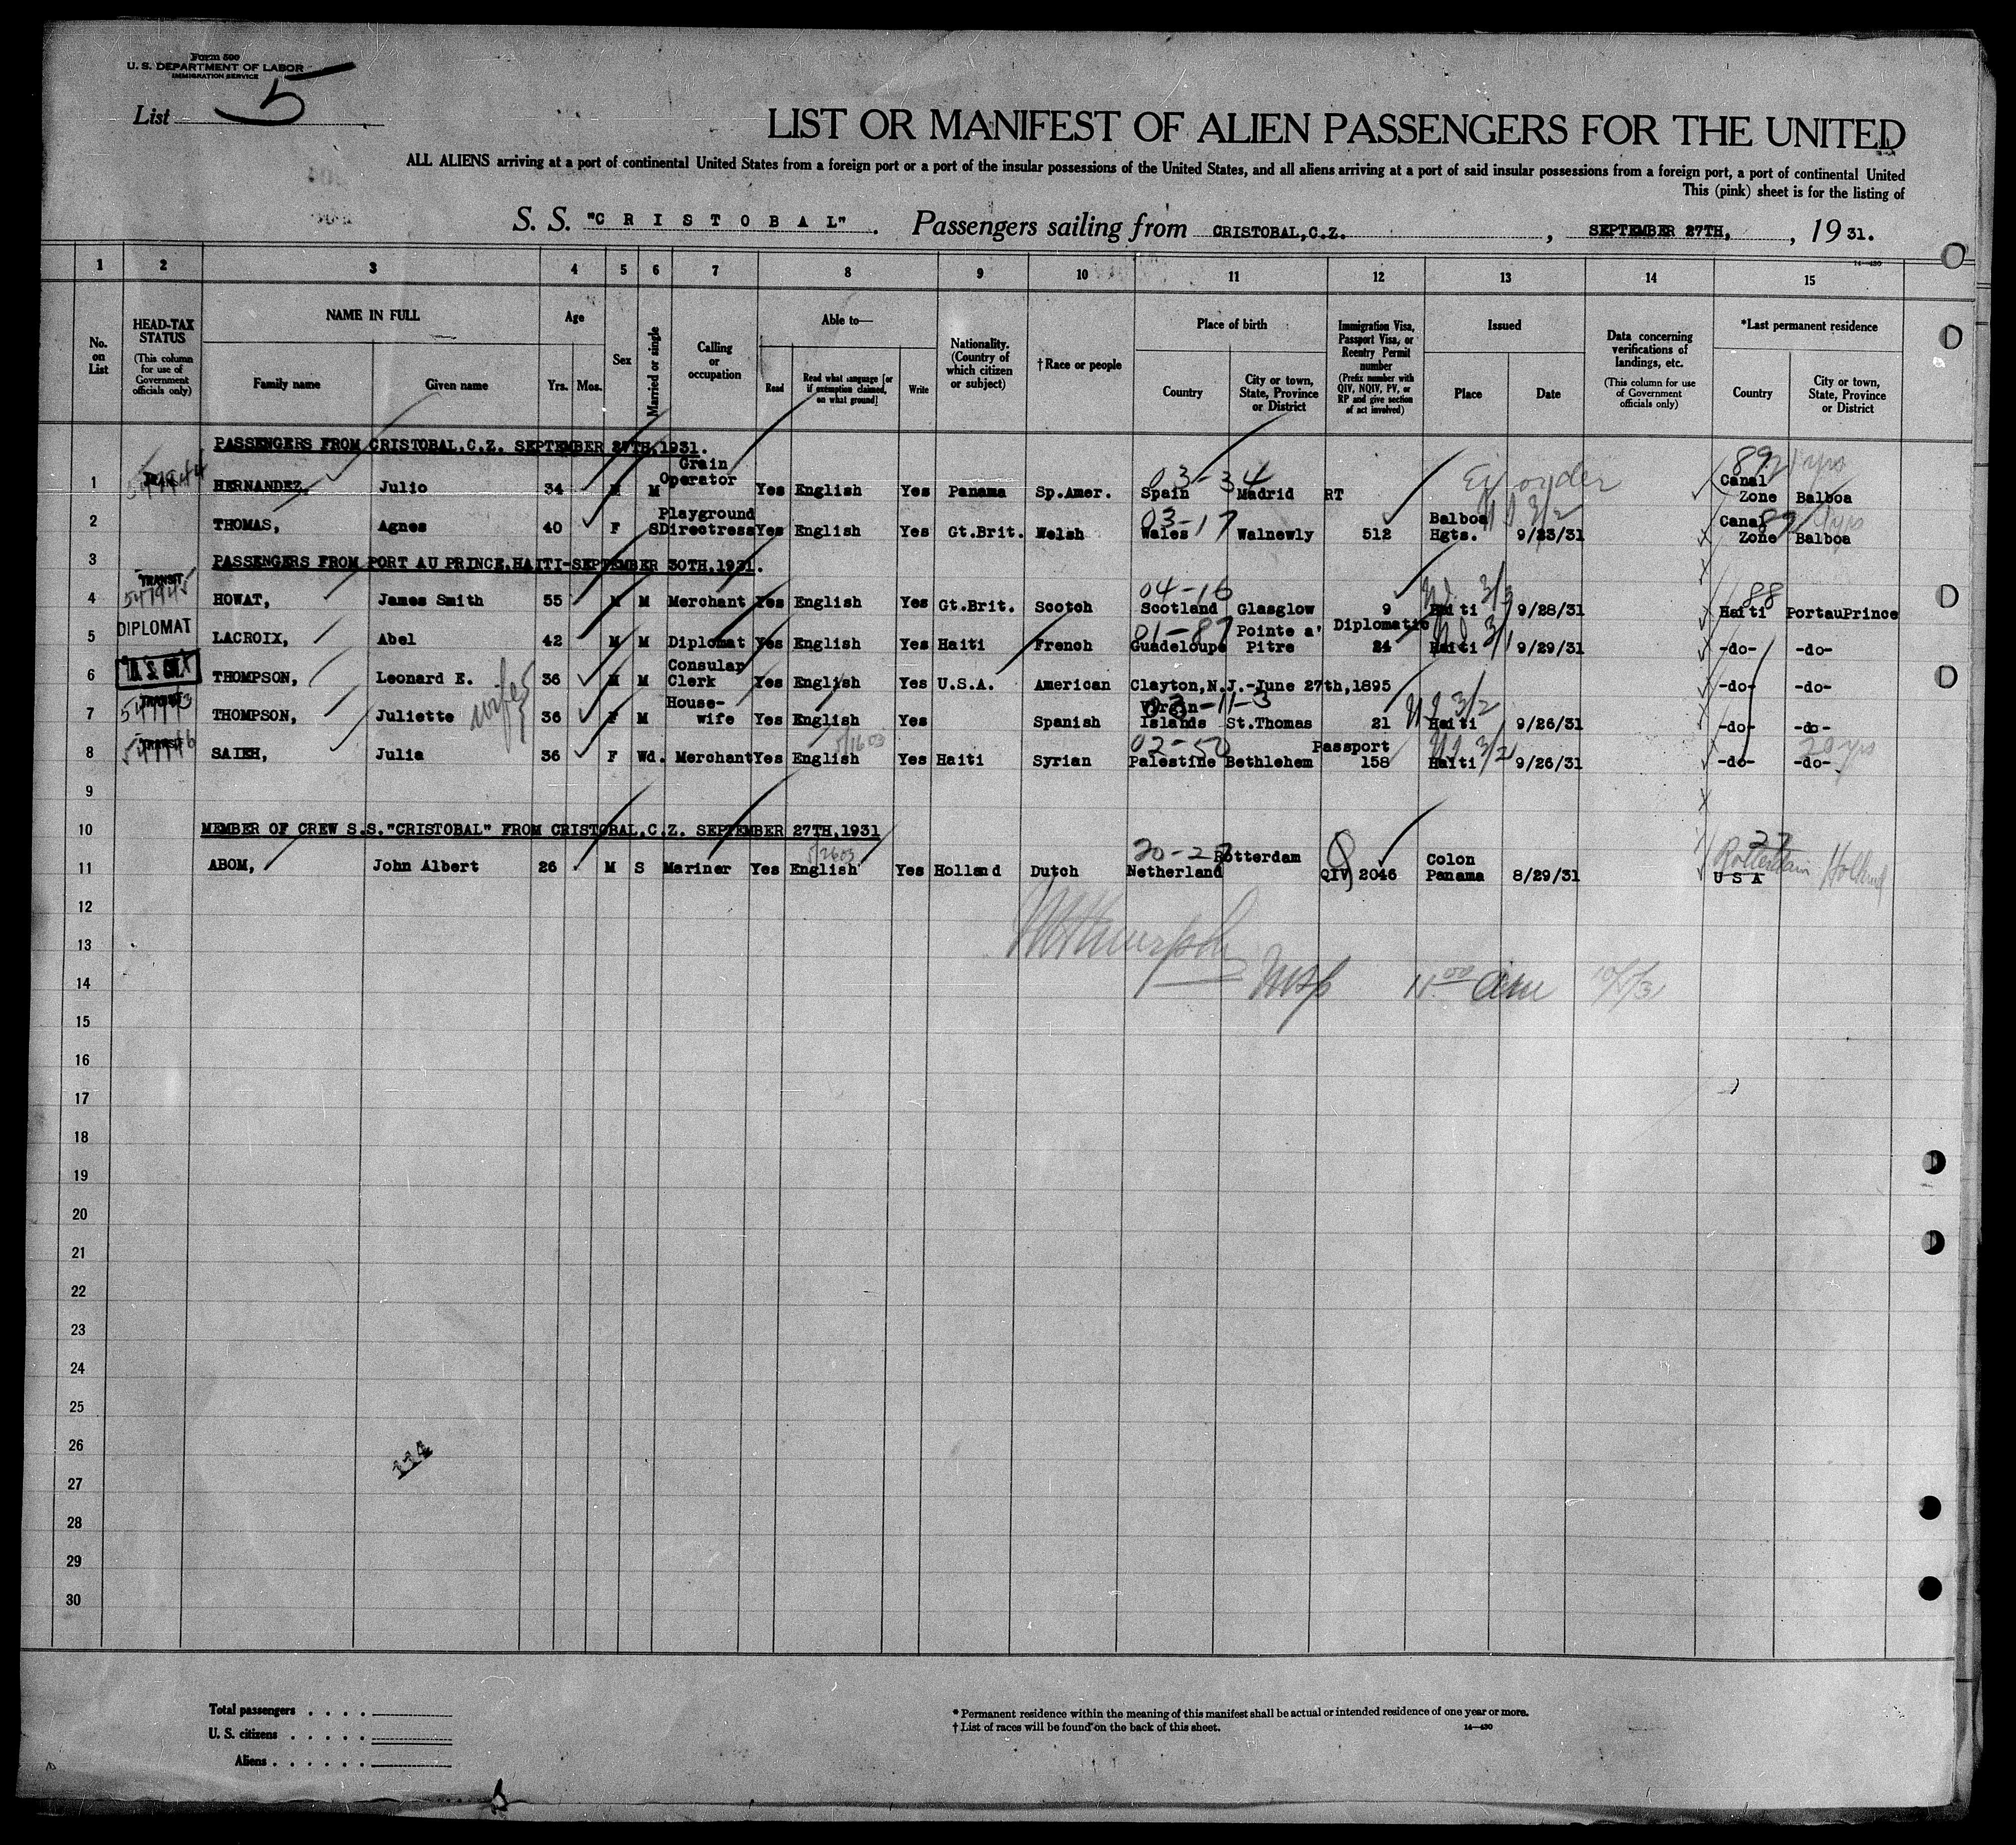 Form 500
U. S. DEPARTMENT OF LABOR
IMMIGRATION SERVICE
List 5
LIST OR MANIFEST OF ALIEN PASSENGERS FOR THE UNITED
ALL ALIENS arriving at a port of continental United States from a foreign port or a port of the insular possessions of the United States, and all aliens arriving at a port of said insular possessions from a foreign port, a port of continental United
This (pink) sheet is for the listing of
S. S. "C R I S T O B A L". Passengers sailing from CRISTOBAL,C.Z. , SEPTEMBER 27TH, , 19 31.
14—430
1 2 3 4 5 6 7 8 9 10 11 12 13 14 15
No. on List
HEAD-TAX STATUS (This column for use of Government officials only)
NAME IN FULL
Family name Given name
Age
Yrs. Mos.
Sex
Married or single
Calling or occupation
Able to—
Read Read what language [or if exemption claimed, on what ground] Write
Nationality. (Country of which citizen or subject)
† Race or people
Place of birth
Country City or town, State, Province or District
Immigration Visa, Passport Visa, or Reentry Permit number (Prefix number with QIV, NQIV, PV, or RP and give section of act involved)
Issued
Place Date
Data concerning verifications of landings, etc. (This column for use of Government officials only)
*Last permanent residence
Country City or town, State, Province or District
PASSENGERS FROM CRISTOBAL,C.Z. SEPTEMBER 27TH,1931.
1 HERNANDEZ, Julio 34 M M Grain Operator Yes English Yes Panama Sp.Amer. 03-34 Spain Madrid RT 89 Canal Zone Balboa
2 THOMAS, Agnes 40 F S Playground Directress Yes English Yes Gt.Brit. Welsh 03-17 Wales Walnewly 512 Balboa Hgts. 9/23/31 89 Canal Zone Balboa
3 PASSENGERS FROM PORT AU PRINCE,HAITI-SEPTEMBER 30TH,1931.
4 TRANSIT 547945 HOWAT, James Smith 55 M M Merchant Yes English Yes Gt.Brit. Scotch 04-16 Scotland Glasglow 9 Haiti 9/28/31 88 Haiti PortauPrince
5 DIPLOMAT LACROIX, Abel 42 M M Diplomat Yes English Yes Haiti French 01-87 Guadeloupe Pointe a' Pitre Diplomatic 24 Haiti 9/29/31 -do- -do-
6 THOMPSON, Leonard E. 36 M M Consular Clerk Yes English Yes U.S.A. American Clayton,N.J.-June 27th,1895 -do- -do-
7 THOMPSON, Juliette wife 36 F M House-wife Yes English Yes Spanish 03-11-3 Virgin Islands St.Thomas 21 Haiti 9/26/31 -do- -do-
8 TRANSIT SAIEH, Julia 36 F Wd. Merchant Yes English Yes Haiti Syrian 02-50 Palestine Bethlehem Passport 158 Haiti 9/26/31 -do- 20 yrs -do-
9
10 MEMBER OF CREW S.S."CRISTOBAL" FROM CRISTOBAL,C.Z. SEPTEMBER 27TH,1931
11 ABOM, John Albert 26 M S Mariner Yes English Yes Holland Dutch 20-27 Netherland Rotterdam QIV 2046 Colon Panama 8/29/31 27 U S A Rotterdam Holland
12
13
14 11 00 am
15
16
17
18
19
20
21
22
23
24
25
26
114
27
28
29
30
Total passengers
U. S. citizens
Aliens
* Permanent residence within the meaning of this manifest shall be actual or intended residence of one year or more.
† List of races will be found on the back of this sheet.
14—430